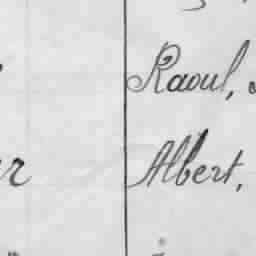 Raoul,
Albert,